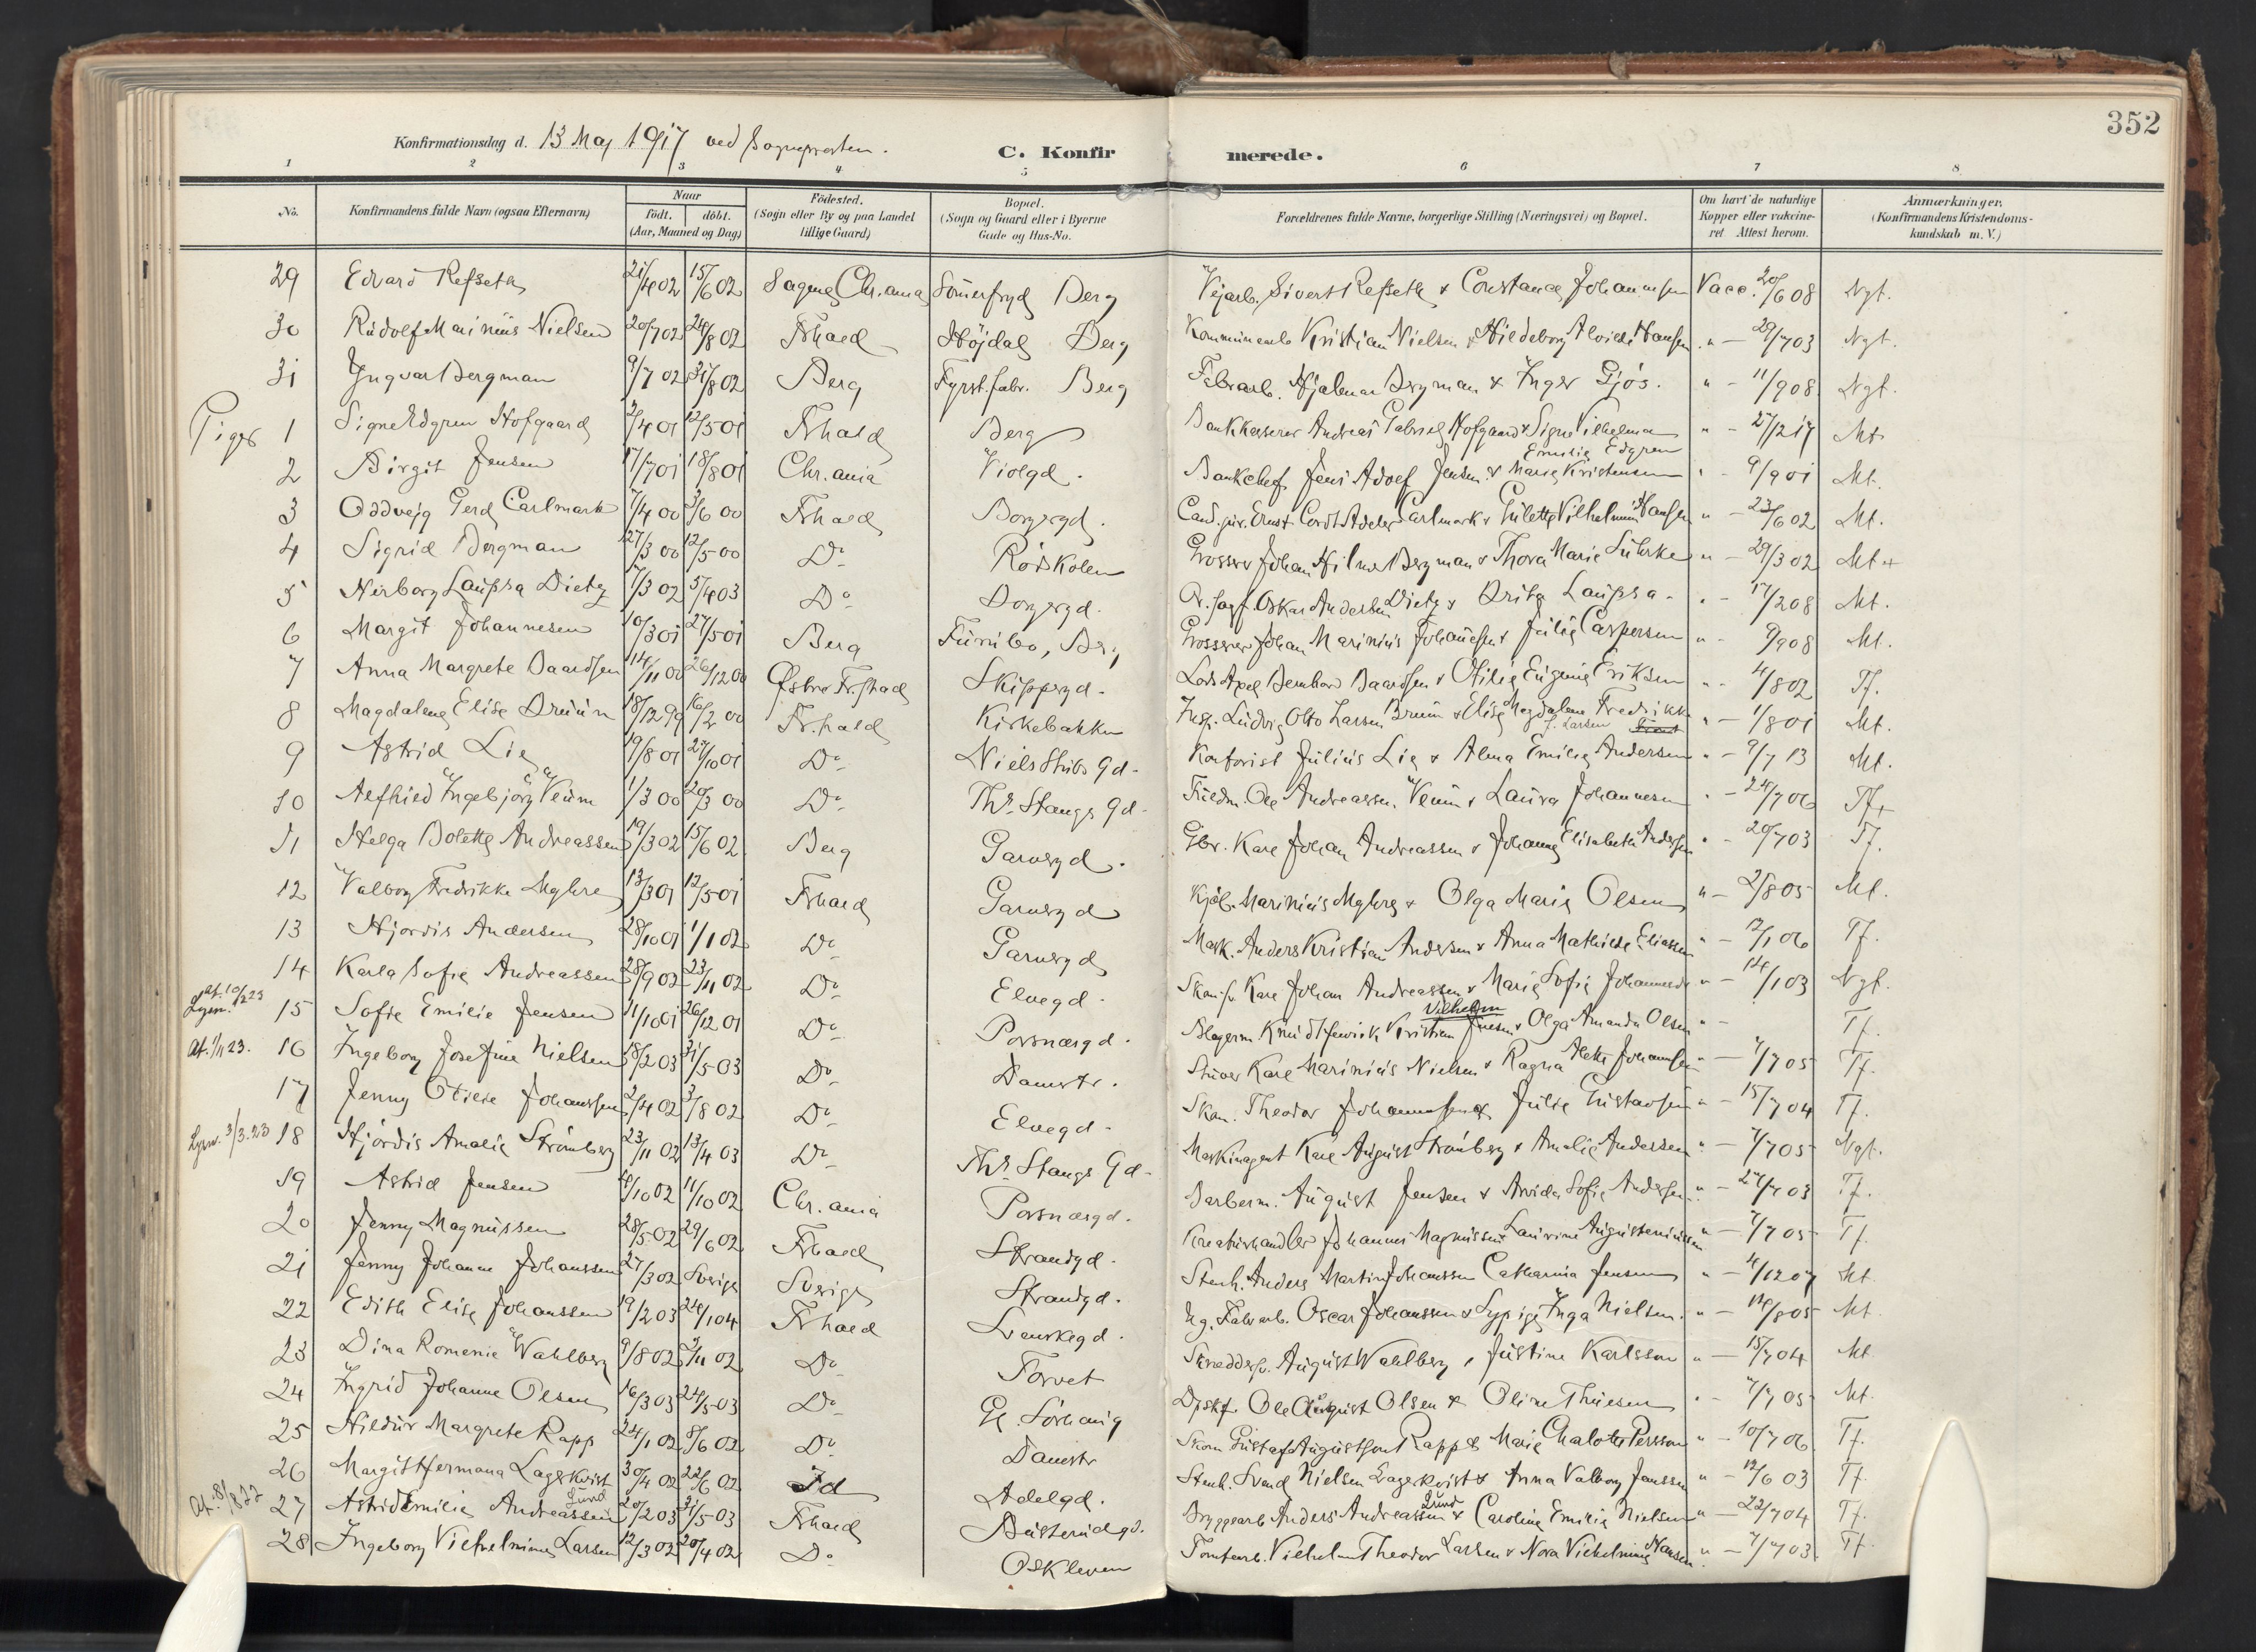 352
Konfirmationsdag d. 13 Maj 1917 ved Sognepræsten.
C. Konfirmerede.
1 2 3 4 5 6 7 8
No. Konfirmandens fulde Navn (ogsaa Efternavn) Naar födt. döbt. (Aar, Maaned og Dag) Födested. (Sogn eller By og paa Landet tillige Gaard) Bopæl. (Sogn og Gaard eller i Byerne Gade og Hus-No. Forældrenes fulde Navne, borgerlige Stilling (Næringsvei) og Bopæl. Om havt de naturlige Kopper eller vaccineret Attest herom. Anmærkninger. (Konfirmandens Kristendomskundskab m. V.)
29 Edvard Refseth 21/4 02 15/6 02 Sagene Chr.ania Sommerfryd Berg Vejarb. Sivert Refseth & Constance Johannesen Vacc. 20/6 08 Ngt.
30 Rudolf Marinius Nielsen 20/7 02 24/8 02 Frhald Höjdal Berg Kristian Nielsen & Hildeborg Alvilde Hansen " — 29/7 03 Ngt.
31 Yngvar Bergman 9/7 02 31/8 02 Berg Fyrst.fabr. Berg Fabrarb. Hjalmar Bergman & Inger Gjös. " - 11/9 08 Ngt.
Piger 1 Signe Edgren Hofgaard 2/4 01 12/5 01 Frhald Berg Bankkasserer Andreas Gabriel Hofgaard & Signe Vilhelmine Emilie Edgren " - 27/2 17 Mt.
2 Birgit Jensen 17/7 01 18/8 01 Chr.ania Violgd. Bankchef Jens Adolf Jensen & Marie Kristensen " - 9/9 01 Mt.
3 Oddvejg Gerd Carlmark 7/4 00 3/6 00 Frhald Borgergd. Cand. jur. Ernst Cordt Adeler Carlmark & Gulette Vilhelmine Hansen " - 23/6 02 Mt.
4 Sigrid Bergman 27/3 00 12/5 00 Do Rödskolen Grosserer Johan Hilmer Bergman & Thora Marie Lührke " - 29/3 02 Mt +
5 Nirborg Laupsa Dietz 7/3 02 5/4 03 Do Borgergd. O.r.sagf. Oskar Andersen Dietz & Brita Laupsa. " - 17/2 08 Mt.
6 Margit Johannesen 10/3 01 27/5 01 Berg Furubo, Berg Grosserer Johan Marinius Johannesen & Julie Caspersen " - 9/9 08 Mt.
7 Anna Margrete Baardsen 14/11 00 26/12 00 Østre Fr.stad Skippergd. Lods Axel Bernhard Baardsen & Otilie Eugenie Eriksen " - 4/8 02 Tf.
8 Magdalena Elise Bruun 18/12 99 16/2 00 Fr.hald Kirkebakken Insp. Ludvig Otto Larsen Bruun & Elise Magdalene Fredrikke f. Larsen " - 1/8 01 Mt.
9 Astrid Lie 19/8 01 27/10 01 Do Niels Stubs Gd. Kontorist Julius Lie & Alma Emilie Andersen " - 9/7 13 Mt.
10 Alfhild Ingebjörg Venm 1/3 00 20/3 00 Do Ths. Stangs Gd. Fuldm. Ole Andreassen Venm & Laura Johannesen " - 24/7 06 Tf +
11 Helga Bolette Andreassen 19/3 02 15/6 02 Berg Garvergd. Gbr. Karl Johan Andreassen & Johanne Elisabeth Andersen " - 20/7 03 Tf.
12 Valborg Fredrikke Myhre 13/3 01 12/5 01 Frhald Garvergd Kjöb. Marinius Myhre & Olga Marie Olsen " - 2/8 05 Mt.
13 Hjordis Andersen 28/10 01 1/1 02 Do Garvergd Mask. Anders Kristian Andersen & Anna Mathilde Eliassen " - 12/1 06 Tf.
14 Karla Sofie Andreassen 28/9 02 23/11 02 Do Elvegd. Karl Johan Andreassen & Marie Sofie Johannesen " - 14/1 03 Ngt.
at. 10/2 23 Lysn. 15 Sofie Emilie Jensen 11/10 01 26/12 01 Do Porsnæsgd. Knudt Henrik Kristian Vilhelm Jensen & Olga Amanda Olsen " - Tf.
At. 1/11 23. 16 Ingeborg Josefine Nielsen 18/2 03 31/5 03 Do Damstr. Stuer Karl Marinius Nielsen & Ragna Alette Johannesen " - 7/7 05 Tf.
17 Jenny Otilie Johanssen 2/4 02 3/8 02 Do Elvegd. Skom. Theodor Johannesen & Julie Gustavsen " - 15/7 04 Tf.
Lysn. 3/3.23 18 Hjördis Amalie Strömberg 23/11 02 13/4 03 Do Ths. Stangs Gd. Maskinagent Karl August Strömberg & Amalie Andersen " - 7/7 05 Ngt.
19 Astrid Jensen 4/10 02 11/10 02 Chr.ania Porsnæsgd. Barberm. August Jensen & Arvida Sofie Andersen " - 27/7 03 Tf.
20 Jenny Magnussen 28/5 02 29/6 02 Frhald Strandgd. Kreaturhandler Johannes Magnussen & Laurine Augusteniussen " - 7/7 05 Tf
21 Jenny Johanne Johanssen 27/3 02 Sverige Sverige Strandgd. Stenh. Anders Martin Johanssen Catharina Jensen " - 4/12 07 Mt
22 Edith Elise Johanssen 19/2 03 24/1 04 Frhald Svenskegd. Ug. Fabrarb. Oscar Johanssen & Sypige Inga Nielsen. " - 14/8 05 Mt
23 Dina Romenie Wahlberg 9/8 02 2/11 02 Do Torvet Skredders. August Wahlberg & Justine Karlsson " - 15/7 04 Mt
24 Ingrid Johanne Olsen 16/3 03 24/5 03 Do Gl. Sörhaug Ole August Olsen & Oline Thuesen " - 7/7 05 Mt.
25 Hildur Margrete Rapp 24/1 02 8/6 02 Do Damstr Skom Gustaf Augustson Rapp & Marie Charlotte Persson " - 10/7 06 Tf.
26 Margit Hermana Lagerkvist 30/4 02 22/6 02 Id Adelgd. Stenh. Svend Nielsen Lagerkvist & Anna Valborg Janssen " - 12/6 03 Tf
At. 8/8 22 27 Astrid Emilie Andreassen Lund 20/2 03 31/5 03 Frhald Busterudgd. Bryggearb Anders Andreassen Lund & Caroline Emilie Nielsen " - 22/7 04 Tf.
28 Ingeborg Vilhelmine Larsen 12/3 02 20/4 02 Do Oskleven Tomtearb. Vilhelm Theodor Larsen & Nora Vilhelmine Hansen " - 7/7 03. Tf.